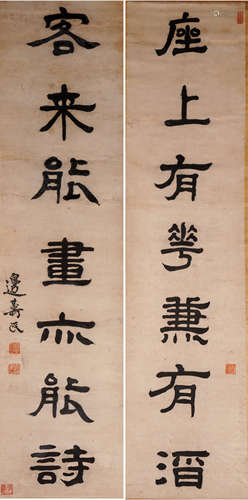 座上有華兼有酒
客来能畫亦能詩
邊壽民